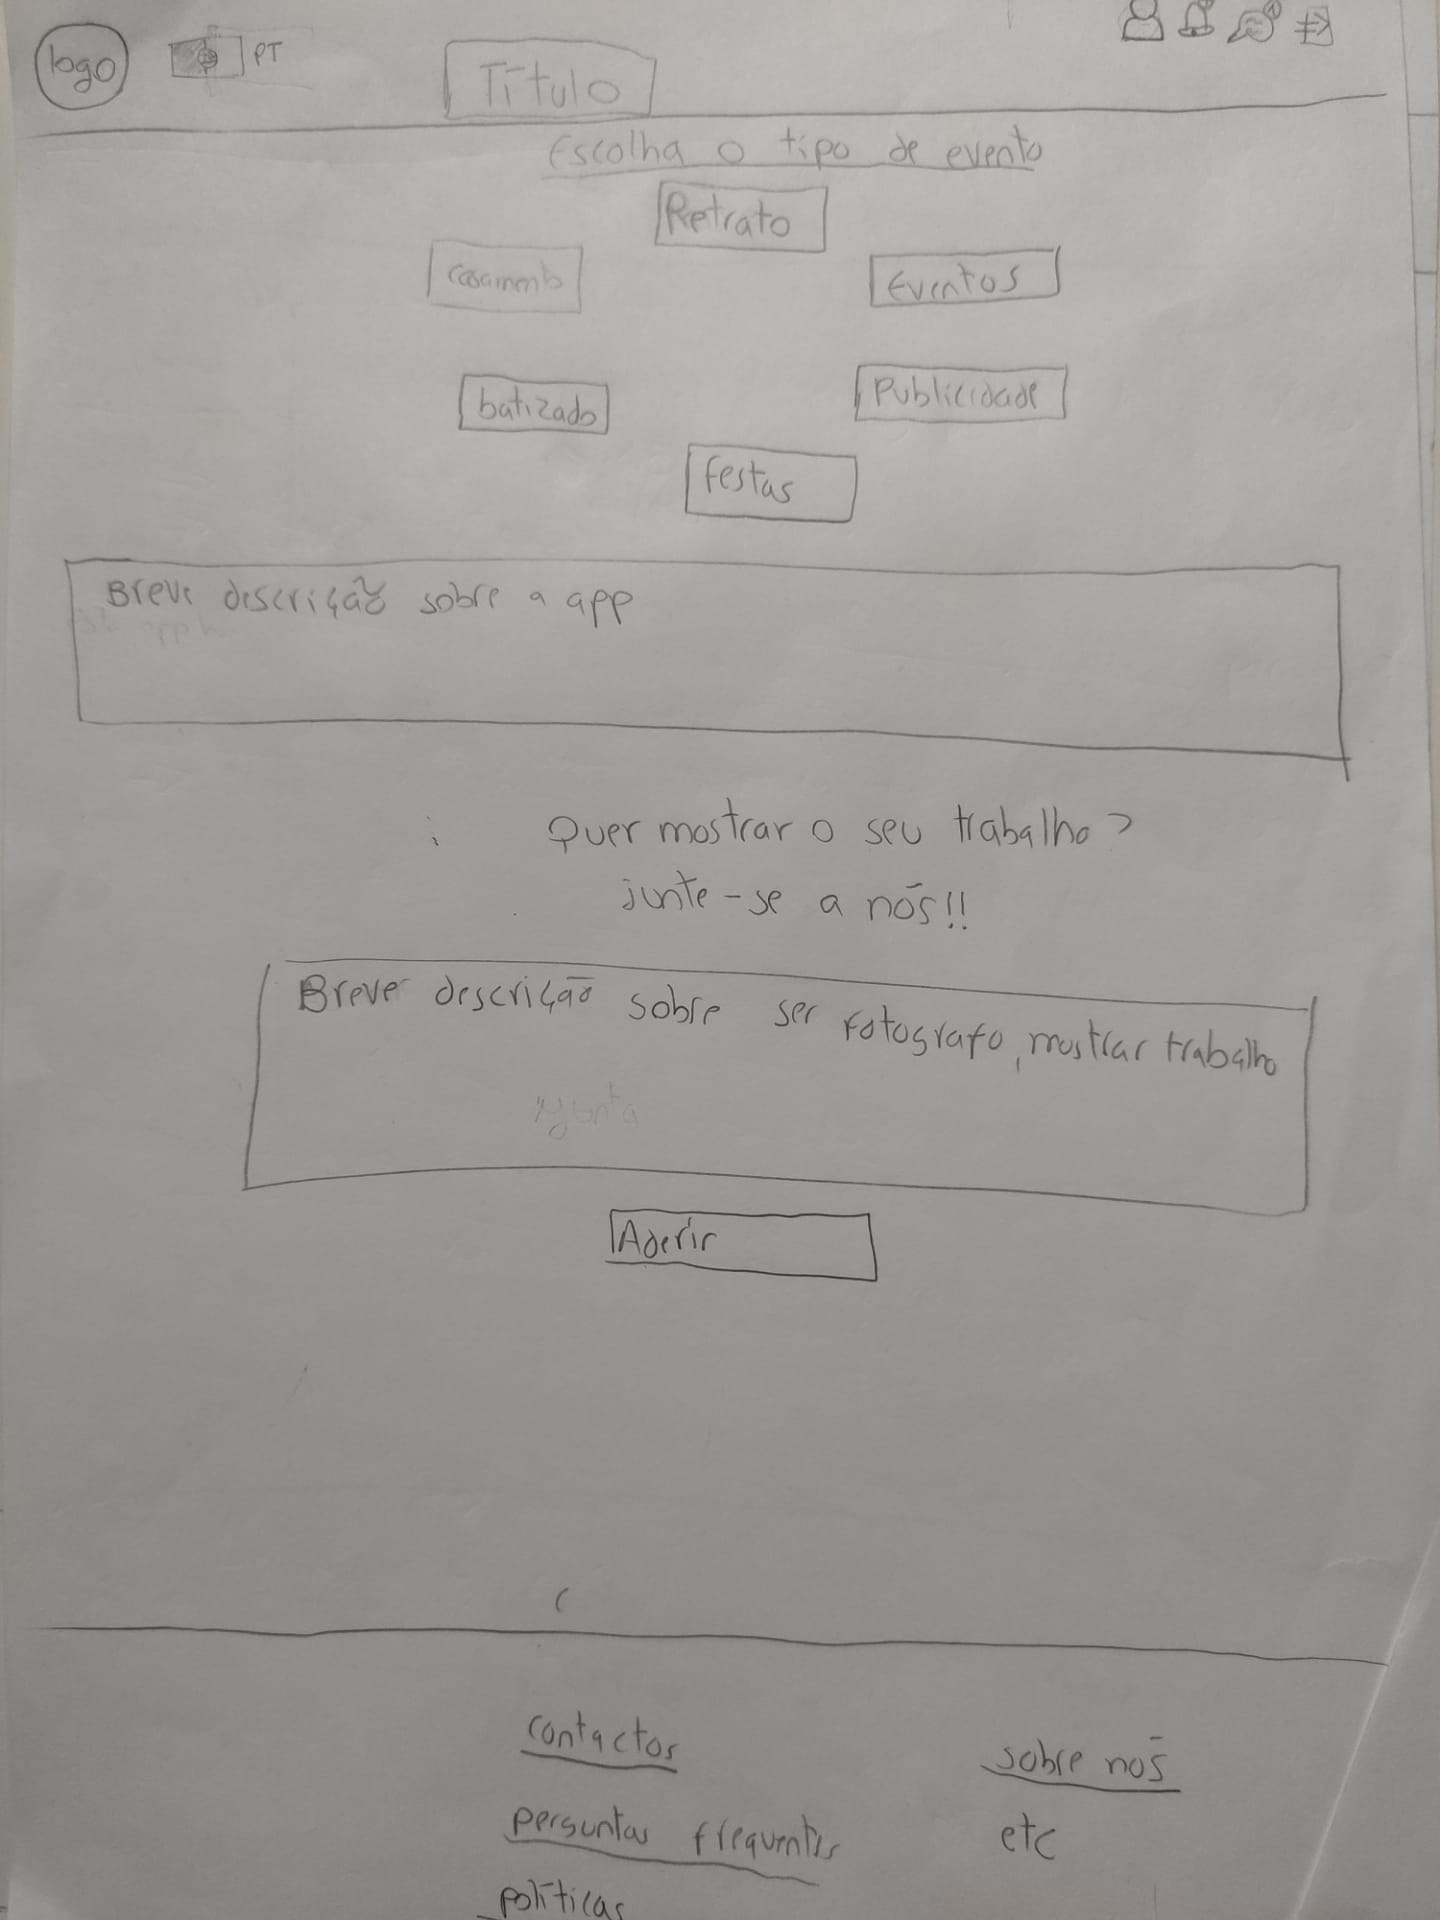 logo
PT
Título
Escolha o tipo de evento
Retrato
Casamento
Eventos
batizado
Publicidade
festas
Breve descrição sobre a app
Quer mostrar o seu trabalho?
junte-se a nós!!
Breve descrição sobre ser fotografo, mostrar trabalho
Aderir
contactos
sobre nós
perguntas frequentes
etc
políticas